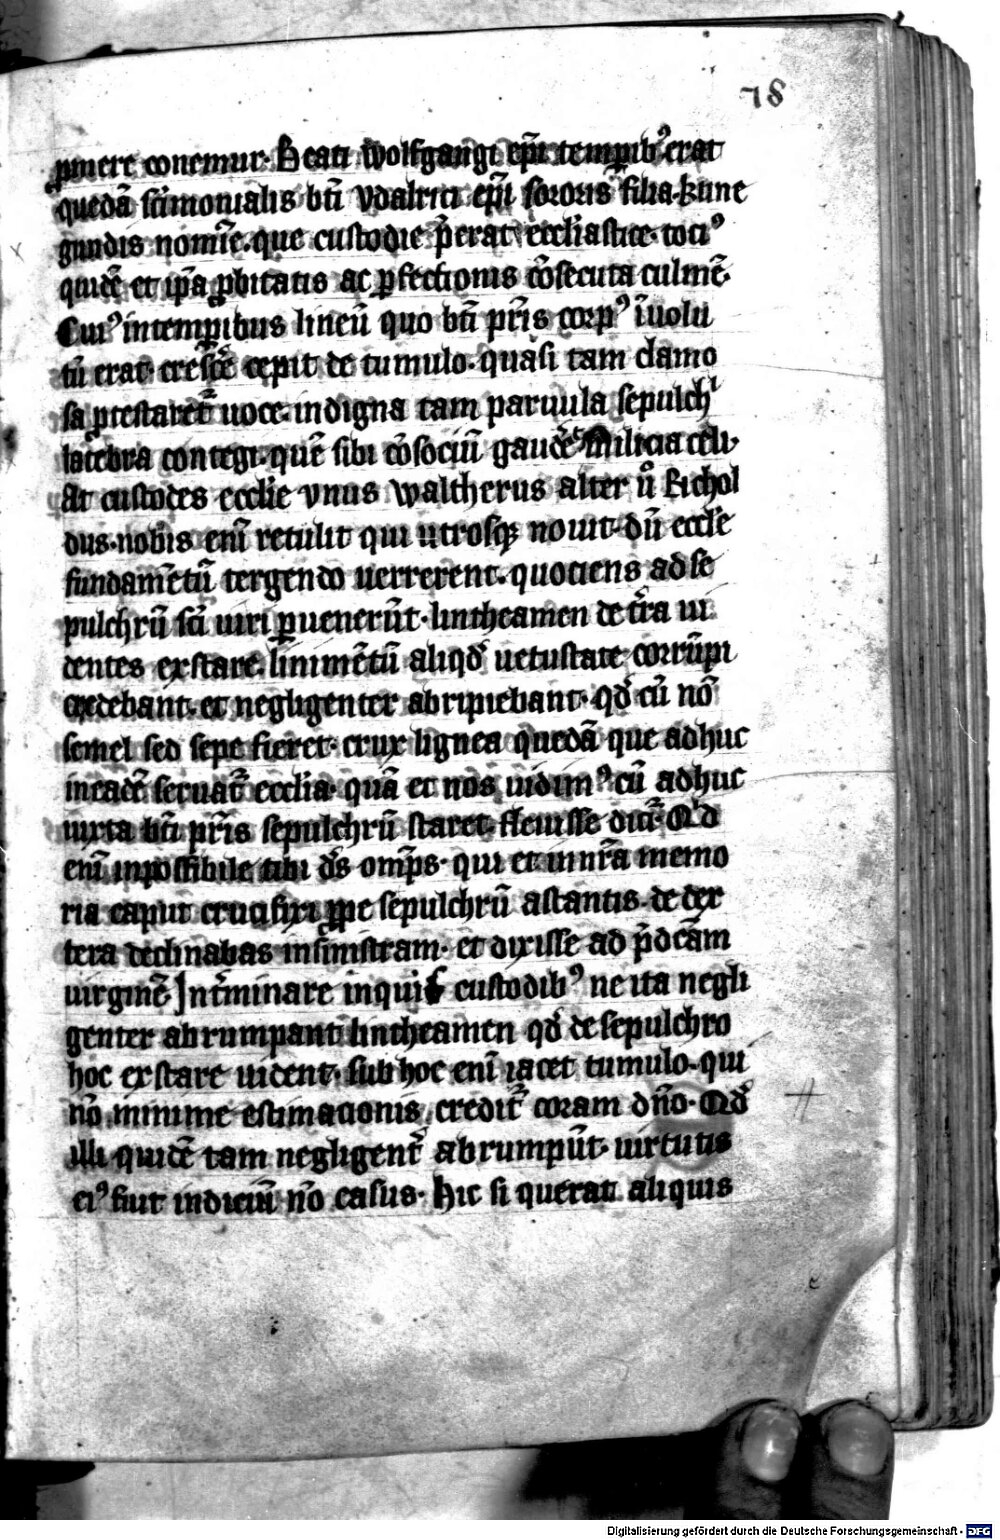 78
pmere conemur. Beati Wolfgangi ep̄i temp̄ibꝰ erat
quedā sc̄imonialis bt̄i Vdalrici ep̄i sororis filia kune
gundis nomīe. que custodie p̄erat ecclīastice. tociꝰ
quiēt et ip̄a ꝓbitatis ac ꝑfectionis cōsecuta culmē.
Cuiꝰ in temꝑibus lineū quo bt̄i pr̄is corpꝰ īuolu
tū erat. cresc̄e cepit de tumulo. quasi tam clamo
sa ꝓtestaret᷑ uoce. indigna tam paruula sepulchͥ
latebra contegi. quē sibi cōsociū gaudēt milicia celi.
At custodes ecclīe vnus Waltherus alter ū Richol
dus. nobis enī retulit qui utrosqꝫ nouit. dū eccl̄e
fundamētū tergendo uerrerent. quociens ad se
pulchrū sc̄i uiri ꝑuenerūt. lintheamen de t̄ra ui
dentes exstare. linimētū aliqd̄ uetustate corrūpi
credebant. et negligenter abripiebant. qd̄ cū nō
semel sed sepe fieret. crux lignea quedā que adhuc
in eadē seruat᷑ ecclīa. quā et nos uidimꝰ cū adhuc
iuxta bt̄i pr̄is sepulchrū staret. fleuisse dicit᷑. Qd̄
enī inpossibile tibi d̄s omp̄s. qui et in nr̄a memo
ria caput crucifixi ꝓpe sepulchrū astantis. de dex
tera declinabas in sinistram. et dixisse ad p̄dc̄am
uirginē. Int̄minare inquit custodibꝰ ne ita negli
genter abrumpant lintheamen qd̄ de sepulchro
hoc exstare uident. sub hoc enī iacet tumulo. qui
nō minime estimationis credit᷑ coram dn̄o. Qd̄
illi quidē tam negligent᷑ abrumpūt. uirtutis
eiꝰ fiut indiciū nō casus. Hic si querat aliquis
Digitalisierung gefördert durch die Deutsche Forschungsgemeinschaft - DFG